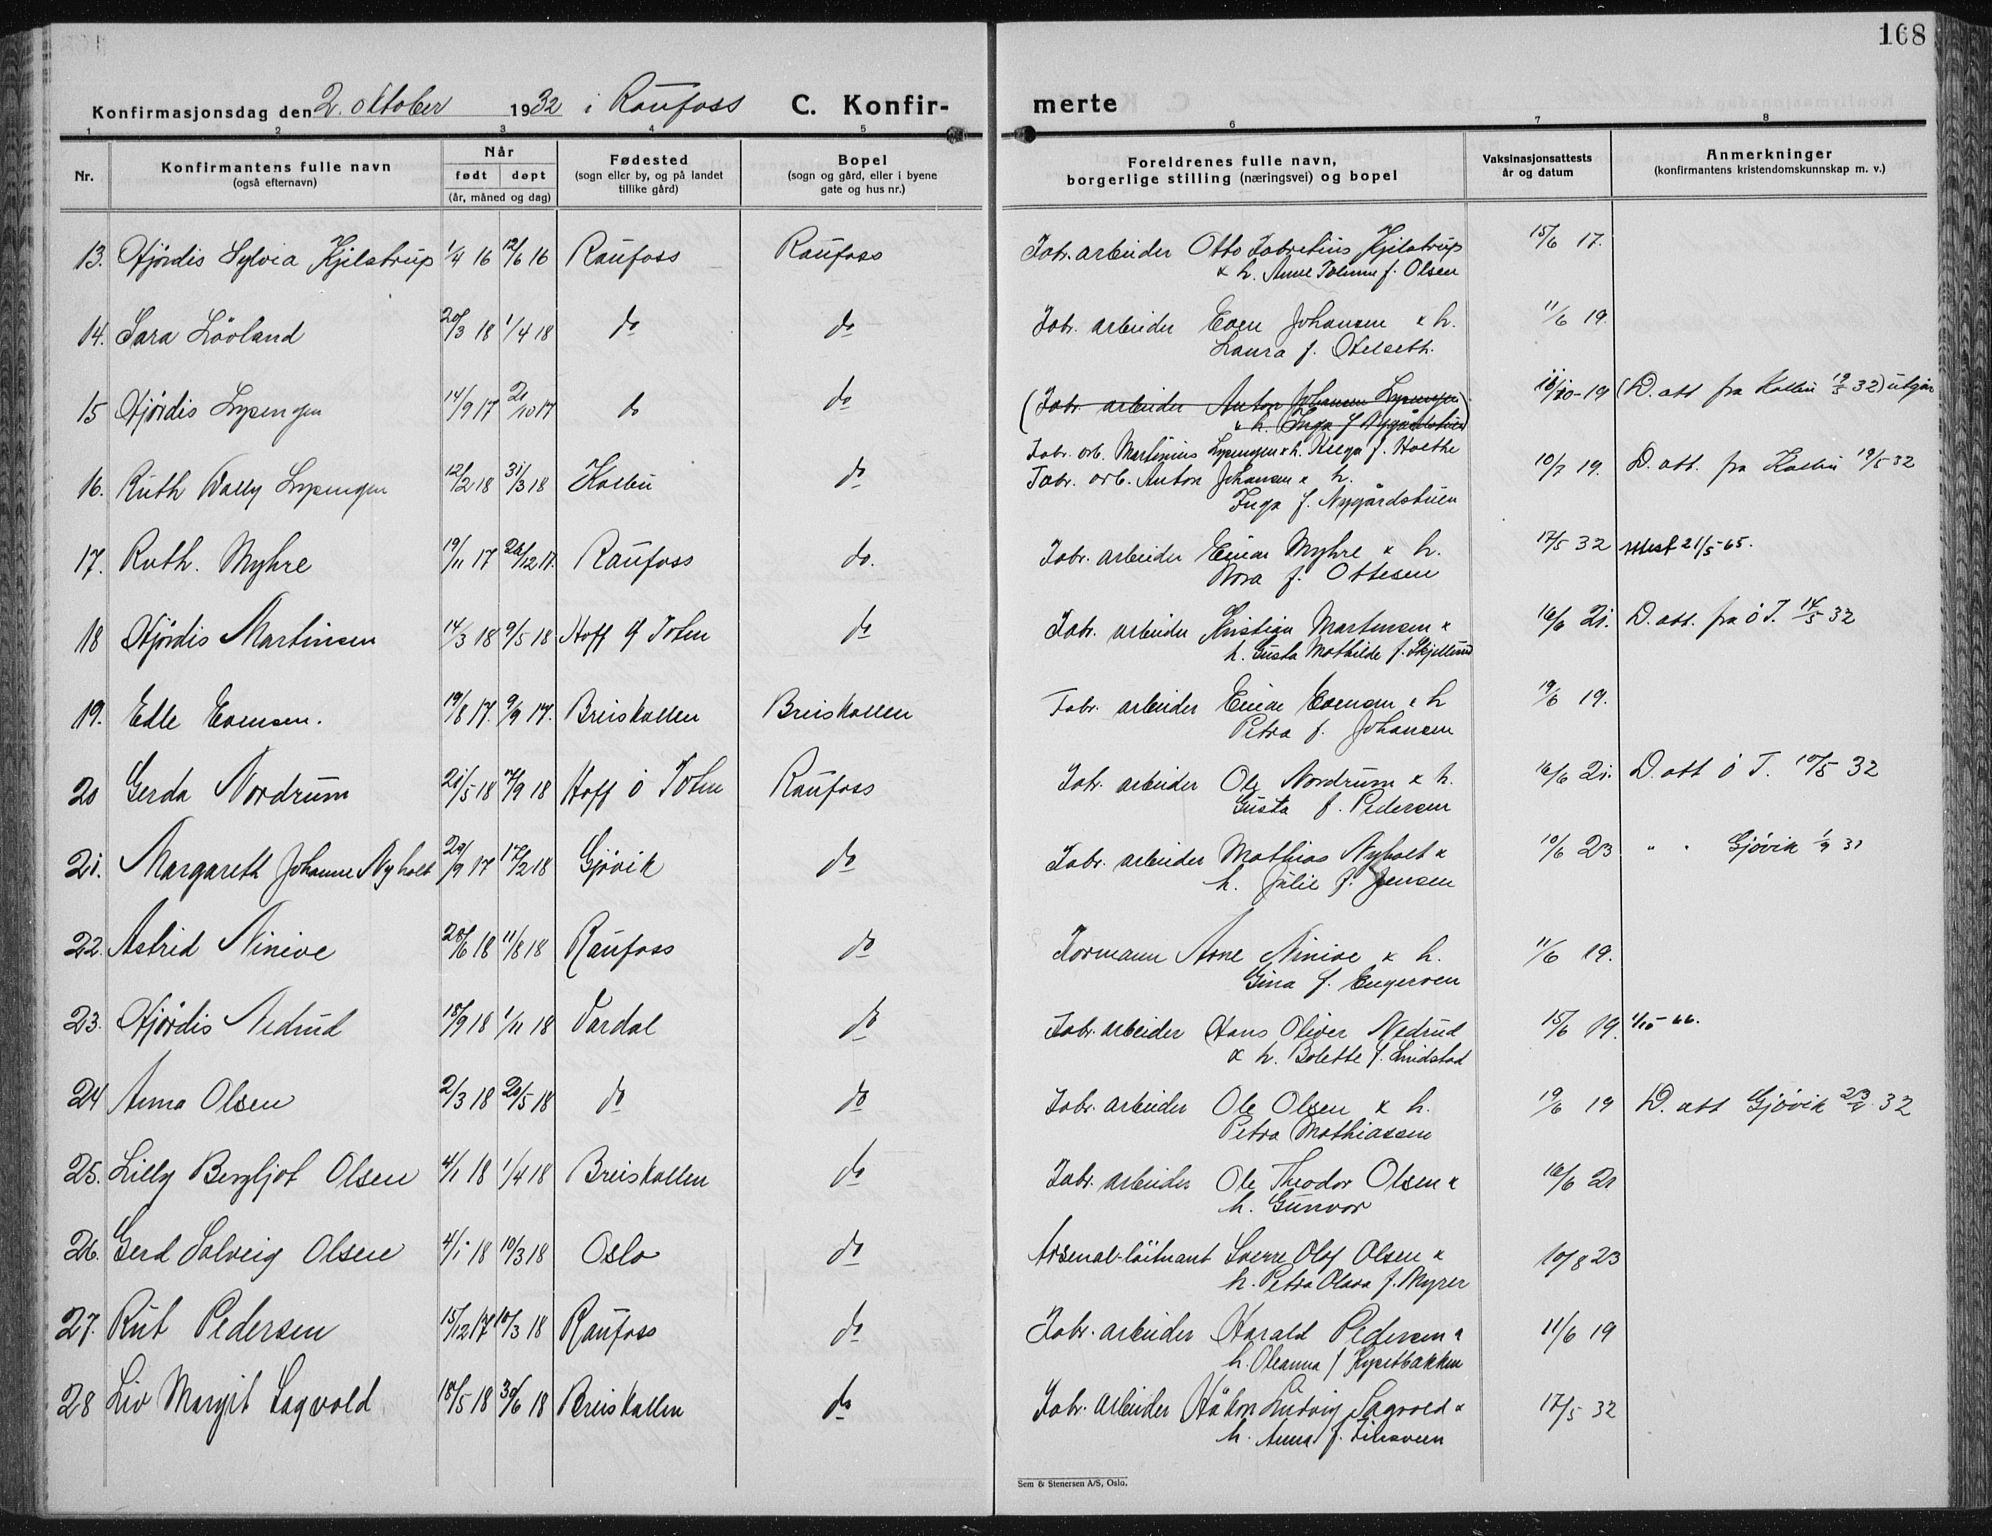 168
Konfirmasjonsdag den 2. oktober 1932 i Raufoss C. Konfir-
merte
1 2 3 4 5 6 7 8
Nr.
Konfirmantens fulle navn
(også efternavn)
Når
født døpt
(år, måned og dag)
Fødested
(sogn eller by, og på landet
tillike gård)
Bopel
(sogn og gård, eller i byene
gate og hus nr.)
Foreldrenes fulle navn,
borgerlige stilling (næringsvei) og bopel
Vaksinasjonsattests
år og datum
Anmerkninger
(konfirmantens kristendomskunnskap m. v.)
13. Hjørdis Sylvia Kjelstrup 1/4 16 12/6 16 Raufoss Raufoss Fabr. arbeider Otto Fabritius Kjelstrup 15/6 17.
& h. Anne f. Olsen
14. Sara Løvland 20/3 18 1/4 18 do do Fabr. arbeider Even Johansen & h. 11/6 19.
Laura f. Helseth.
15 Hjørdis Lysengen 14/9 17 21/10 17 do do (Fabr. arbeider Anton Johansen Lysengen 18/10-19 (D. att fra Kolbu 19/5 32) utgår
& h. Inga f. Nygårdstuen)
Fabr. arb. Martinius Lysengen & h. Helga f. Holthe
16. Ruth Wally Lysengen 12/2 18 31/3 18 Kolbu do Fabr. arb. Anton Johansen & h. 10/7 19. D. att. fra Kolbu 19/5 32
Inga f. Nygårdstuen
17. Ruth. Myhre 19/11 17 26/12 17. Raufoss do. Fabr. arbeider Einar Myhre & h. 17/5 32 attest 21/5-65.
Nora f. Ottesen
18 Hjørdis Martinsen 14/3 18 9/5 18 Hoff Ø Toten do Fabr. arbeider Kristian Martinsen & 16/6 21. D. att. fra Ø T. 14/5 32
h. Gusta Mathilde f. Skjellerud
19. Edle Evensen. 19/8 17. 9/9 17. Breiskallen Breiskallen Fabr. arbeider Einar Evensen & h 19/6 19.
Petra f. Johansen
20 Gerda Nordrum 21/5 18 /9 18 Hoff Ø Toten Raufoss Fabr. arbeider Ole Nordrum & h. 16/6 21. D. att Ø T. 10/5 32
Gusta f. Pedersen
21. Margareth Johanne Nyholt 29/9 17 17/2 18 Gjøvik do Fabr. arbeider Mathias Nyholt & 10/6 23 " " Gjøvik 1/9 31
h. Julie f. Jensen
22. Astrid Ninive 28/6 18 11/8 18 Raufoss do Formann Arne Ninive & h. 11/6 19.
Gina f. Engerveen
23. Hjørdis Nedrud 18/9 18 1/11 18 Vardal do Fabr. arbeider Hans Oliver Nedrud 15/6 19. 1/10-66.
& h. Bolette f. Lindstad
24 Anna Olsen 2/3 18 20/5 18 do do Fabr. arbeider Ole Olsen & h. 19/6 19 D. att Gjøvik 32
Petra Mathiasen
25. Lilly Bergljot Olsen 4/1 18 1/4 18 Breiskallen do Fabr. arbeider Ole Theodor Olsen & 16/6 21
h. Gunvor
26. Gerd Solveig Olsen 4/1 18 10/3 18 Oslo do Arsenal-løitnant Sverre Olaf Olsen & 10/8 23
h. Petra Olava f. Myrer
27. Rut Pedersen 15/12 17 10/3 18 Raufoss do Fabr. arbeider Harald Pedersen & 11/6 19
h. Oleanna f
28 Liv Margit Sagvold 18/5 18 30/6 18 Breiskallen do Fabr. arbeider Håkon Ludvig Sagvold & 17/5 32
h. Anna f.
Sem & Stenersen A/S, Oslo.